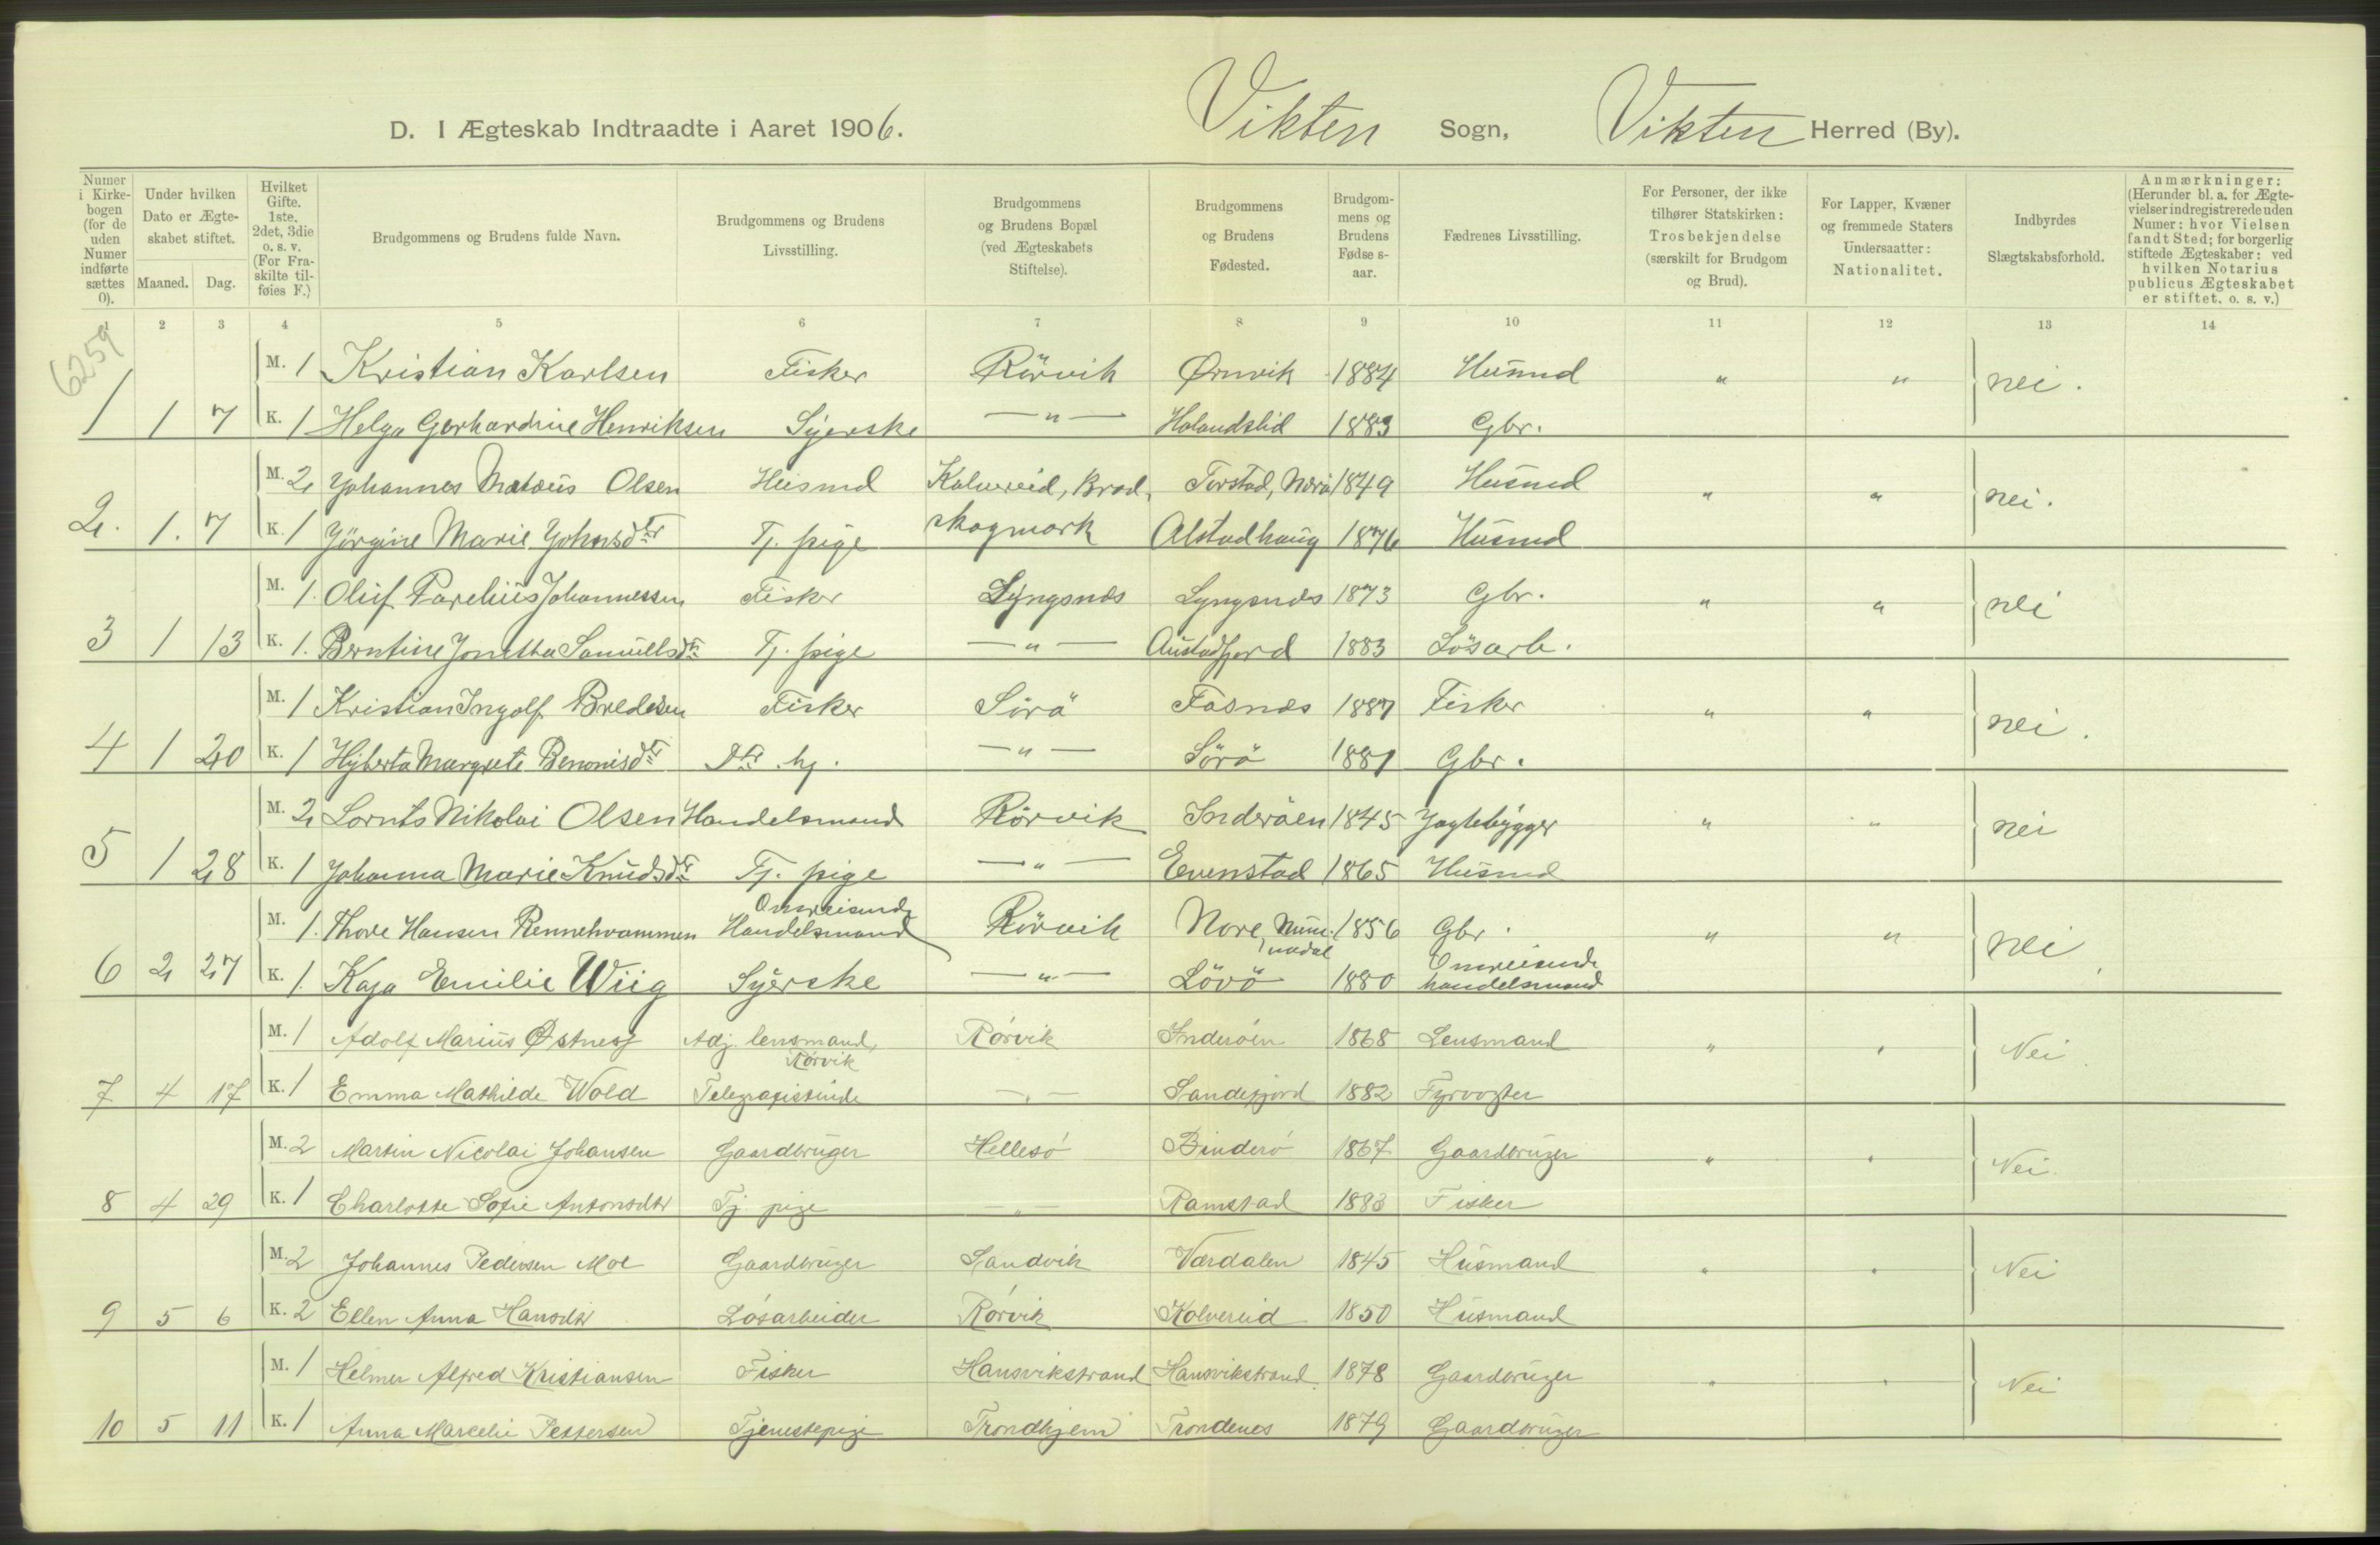 D. I Ægteskab Indtraadte i Aaret 1906. Vikten Sogn, Vikten Herred (By).
Numer i Kirkebogen (for de uden Numer indførte sættes 0).
Under hvilken Dato er Ægteskabet stiftet.
Maaned. Dag.
Hvilket Gifte. 1ste, 2det, 3die o. s. v. (For Fraskilte tilføies F.)
Brudgommens og Brudens fulde Navn.
Brudgommens og Brudens Livsstilling.
Brudgommens og Brudens Bopæl (ved Ægteskabets Stiftelse).
Brudgommens og Brudens Fødested.
Brudgommens og Brudens Fødselsaar.
Fædrenes Livsstilling.
For Personer, der ikke tilhører Statskirken: Trosbekjendelse (særskilt for Brudgom og Brud).
For Lapper, Kvæner og fremmede Staters Undersaatter: Nationalitet.
Indbyrdes Slægtskabsforhold.
Anmærkninger: (Herunder bl. a. for Ægtevielser indregistrerede uden Numer: hvor Vielsen fandt Sted; for borgerlig stiftede Ægteskaber: ved hvilken Notarius publicus Ægteskabet er stiftet. o. s. v.)
1 2 3 4 5 6 7 8 9 10 11 12 13 14
6259
M. 1 Kristian Karlsen Fisker Rörvik Ørnvik 1884 Husmd " " nei.
1 1 7 K. 1 Helga Gerhardine Henriksen Syerske — " — Holandslid 1883 Gbr.
M. 2 Johannes Mateus Olsen Husmd Kolvereid, Brand, Torstad, Nærö 1849 Husmd " " nei.
2. 1. 7 K. 1 Jörgine Marie Johnsdtr Tj. pige skogmark Alstadhaug 1876 Husmd
M. 1. Oluf Parelius Johannessen Fisker Lyngsnes Lyngsnes 1873 Gbr. " " nei
3 1 13 K. 1. Berntine Jonetha Samuelsdtr Tj. pige — " — Austadfjord 1883 Lösarb.
M. 1 Kristian Ingolf Bredesen Fisker Sörö Fosnes 1887 Fisker " " nei.
4 1 20 K. 1 Hyberta Margrete Benonisdtr Dtr. hj. — " — Sörö 1881 Gbr.
M. 2 Lornts Nikolai Olsen Handelsmand Rörvik Inderöen 1845 Jagtebygger " " nei
5 1 28 K. 1 Johanna Marie Knudsdtr Tj. pige — " — Evenstad 1865 Husmd
M. 1. Thore Hansen Rennehvammen Omreisende Handelsmand Rörvik Nore, Numedal 1856 Gbr. " " nei
6 2 27 K. 1. Kaja Emilie Wiig Syerske — " — Lövö 1880 Omreisende handelsmand
M. 1 Adolf Marius Østnes Adj. lensmand, Rörvik Inderöen 1868 Lensmand " " Nei
Rörvik
7 4 17 K. 1 Emma Mathilde Wold Telegrafistinde — " — Sandefjord 1882 Fyrvogter
M. 2 Martin Nicolai Johansen Gaardbruger Hellesö Binderö 1867 Gaardbruger " " Nei.
8 4 29 K. 1 Charlotte Sofie Antonsdtr Tj. pige — " — Ramstad 1883 Fisker
M. 2 Johannes Pedersen Moe Gaardbruger Sandvik Værdalen 1845 Husmand " " Nei
9 5 6 K. 2 Ellen Anna Hansdtr Lösarbeider Rörvik Kolvereid 1850 Husmand
M. 1 Helmer Alfred Kristiansen Fisker Hansvikstrand Hansvikstrand 1878 Gaardbruger " " Nei
10 5 11 K. 1 Anna Marcelie Pettersen Tjenestepige Trondhjem Trondenes 1879 Gaardbruger